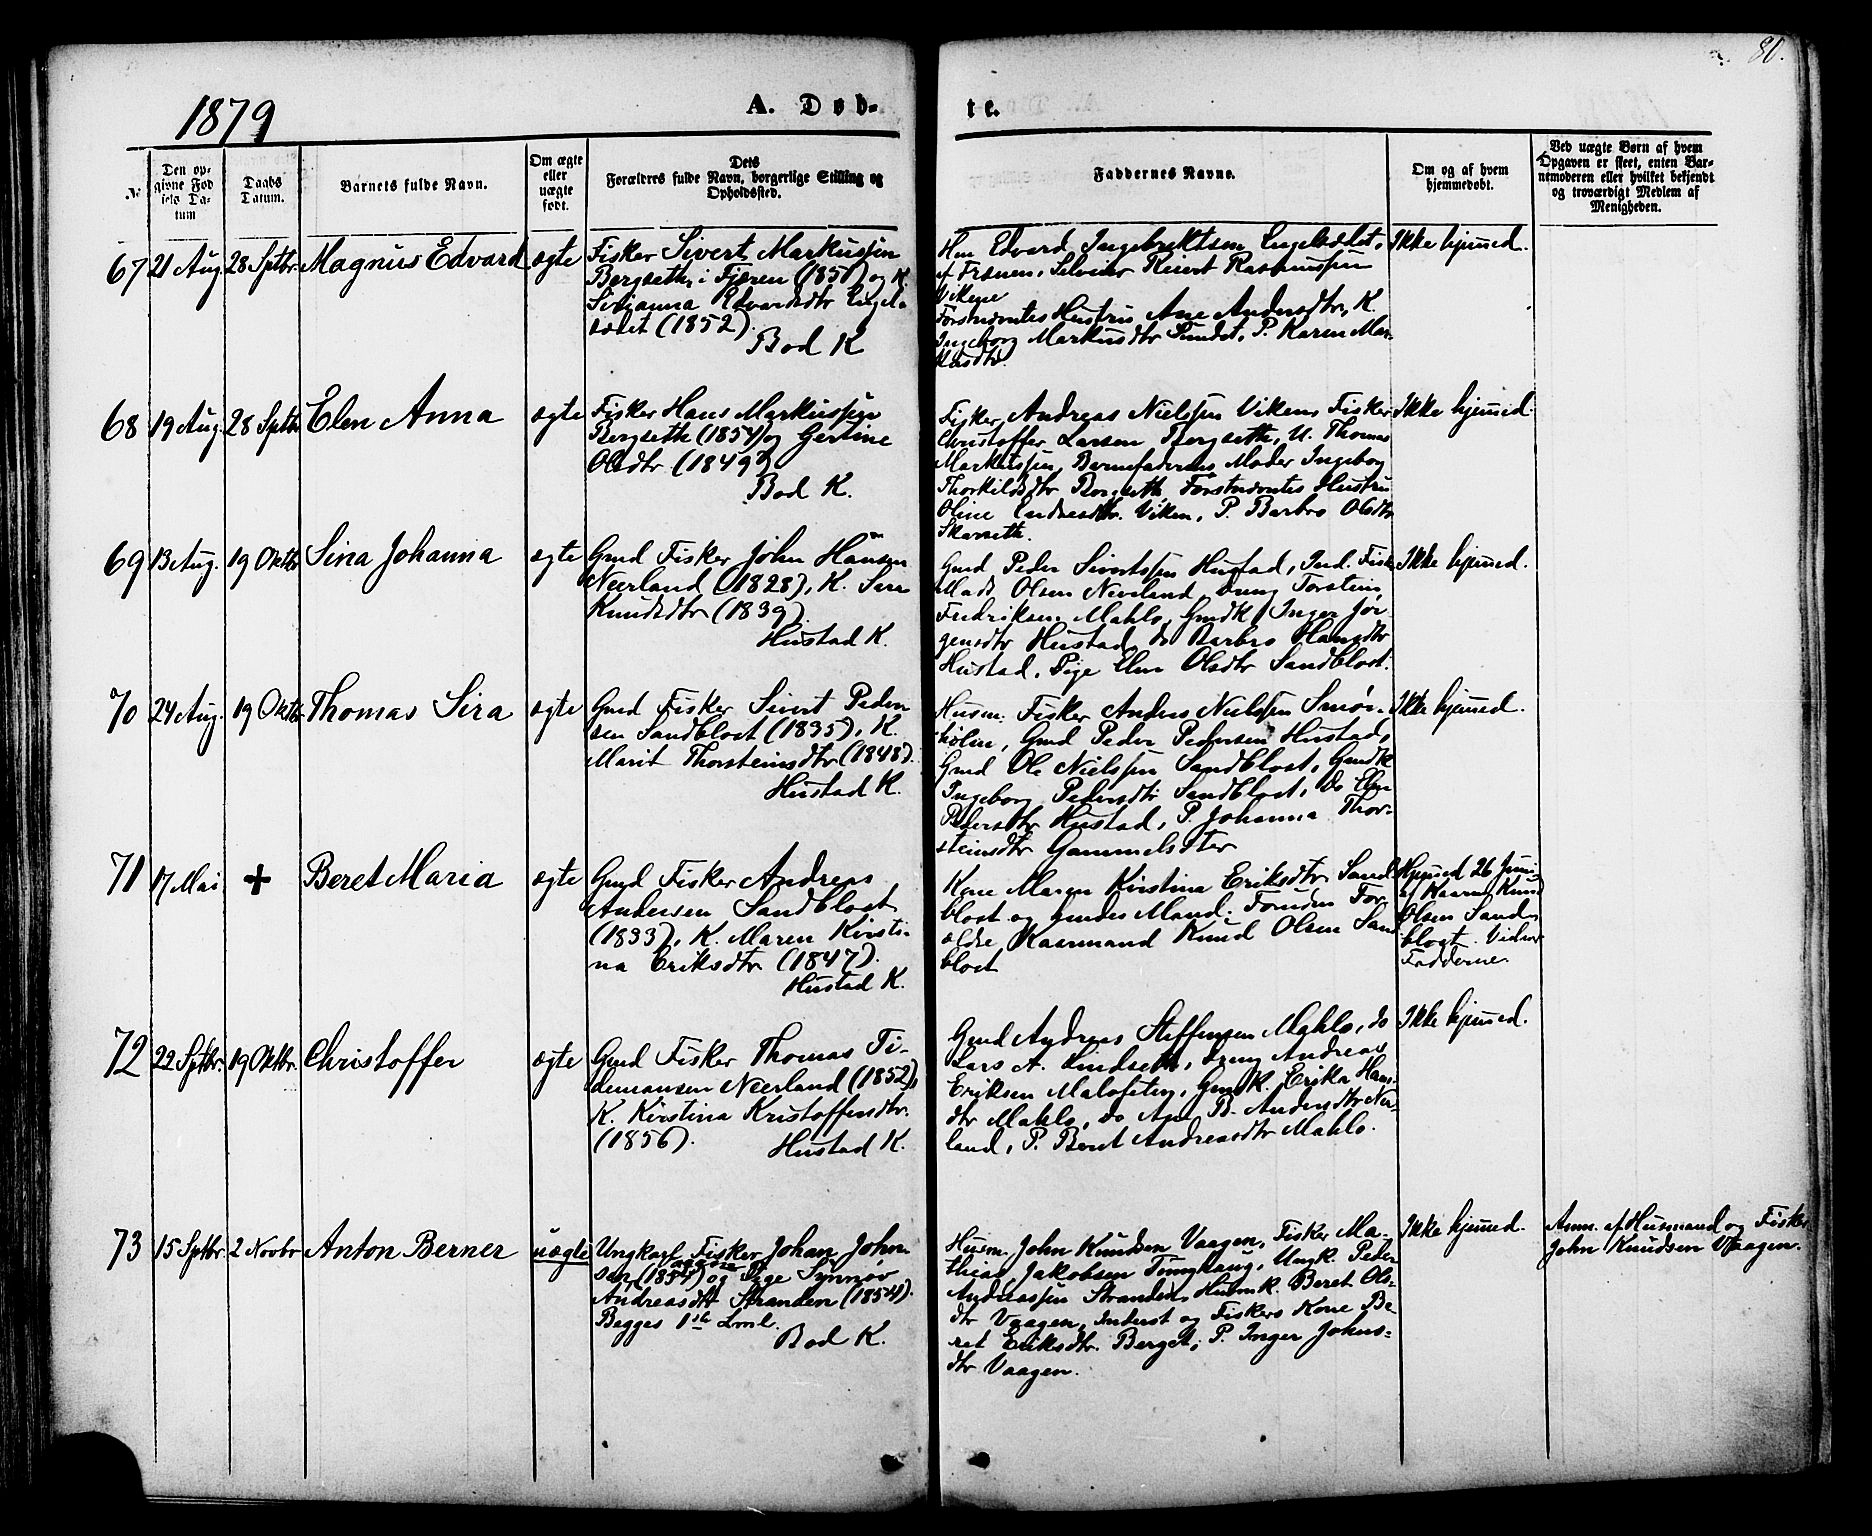 80.
1879
A. Døb-
te.
No
Den op-
givne Fød
sels Da-
tum
Daabs
Datum.
Barnets fulde Navn.
Om ægte
eller
uægte
født.
Dets
Forældres fulde Navn, borgerlige Stilling og
Opholdssted.
Faddernes Navne.
Om og af hvem
hjemmedøbt.
Ved uægte Børn af hvem
Opgaven er skeet, enten Bar-
nemoderen eller hvilket bekjendt
og troværdigt Medlem af
Menigheden.
67 21 Aug 28 Sptbr. Magnus Edvard ægte
Fisker Sivert Markussen
Bergseth i Fjæren (1851) og K.
Sivianna Edvardsdtr Engel-
sætet (1852).
Bod K
Hm Edvard Ingebriktsen Engelsætet,
af Frænen, Selveier Reiert Rasmussen
Vikene
Førstnævntes Hustru Ane Andersdtr, K.
Ingeborg Markusdtr Sundet, P. Karen Mar-
kusdtr
Ikke hjemmed.
68 19 Aug. 28 Sptbr Elen Anna ægte
Fisker Hans Markussen
Bergseth (1854) og Gertine
Olsdtr (1849)
Bod K.
Fisker Andreas Nielssen Viken, Fisker
Christoffer Larsen Bergseth, U. Thomas
Markussen, Barnefaderens Moder Ingeborg
Thorkildsdtr Bergseth, Førstnævntes Hustru
Oline Endresdtr. Viken, P. Barbro Olsdtr
Skarseth.
Ikke hjemmed.
69 13 Aug. 19 Oktbr Sina Johanna ægte
Gmd Fisker John Hansen
Neerland (1828), K. Sira
Knudsdtr (1839)
Hustad K.
Gmd Peder Sivertssen Hustad, Ind. Fisk.
Mads Olsen Neerland, Dreng Torstein
Fredriksen Mahlo, Gmdk Inger Jør-
gensdtr Hustad, do Barbro Hansdtr
Hustad, Pige Elen Olsdtr Sandblost.
Ikke hjemmed.
70 24 Aug. 19 Oktbr. Thomas Sira ægte
Gmd Fisker Sivert Peder-
sen Sandblost (1835), K.
Marit Thorsteinsdtr (1848).
Hustad K.
Husm. Fisker Anders Nielssen Smør-
holm, Gmd Peder Pedersen Hustad,
Gmd Ole Nielssen Sandblost, Gmdk
Ingeborg Pedersdtr Sandblost, do Elen
Pedersdtr Hustad, P. Johanna Thor-
steinsdtr Gammelsæter
Ikke hjemmed.
71 17 Mai + Beret Maria ægte
Gmd Fisker Andreas
Andersen Sandblost
(1833), K. Maren Kirsti-
na Eriksdtr (1847).
Hustad K.
Kone Maren Kirstina Eriksdtr Sand-
blost og hendes Mand: Foruden For-
ældre Kaarmand Knud Olsen Sand
blost
Hjemmed 26 Juni
af Kaarm. Knud
Olsen Sand-
blost. Vidner
Fadderne.
72 22 Sptbr. 19 Oktbr. Christoffer ægte
Gmd Fisker Thomas Ti-
demansen Neerland (1852),
K. Kirstina Kristoffersdtr.
(1856).
Hustad K.
Gmd Andreas Steffensen Mahlo, do
Lars A. Lindseth, Dreng Andreas
Eriksen Malofeten, Gmdk. Erika Hans-
dtr Mahlo, do Ane B. Andersdtr Neer-
land, P. Beret Andreasdtr Mahlo.
Ikke hjemmed.
73 15 Sptbr. 2 Novbr Anton Berner uægte
Ungkarl Fisker Johan John-
sen (1854) og Pige Synnøv
Andreasdtr Stranden (1854).
Begges 1ste Lml.
Bod K.
Husm. John Knudsen Vaagen, Fisker Ma-
thias Jakobsen Tunghaug, Ungk. Peder
Andreassen Stranden, Husmk. Beret Ols-
dtr Vaagen, Inderst og Fiskers Kone Be-
ret Eriksdtr. Berget, P. Inger Johns-
dtr Vaagen.
Ikke hjemmed.
Anm. af Husmand og Fisker
John Knudsen Vaagen.